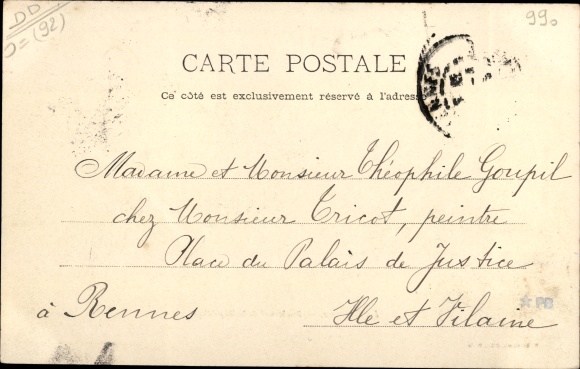 DD
D=(92)
990
CARTE POSTALE
Ce côté est exclusivement réservé à l'adresse
Madame et Monsieur Théophile Goupil
chez Monsieur Tricot, peintre
Place du Palais de Justice
à Rennes Ille et Vilaine
PB